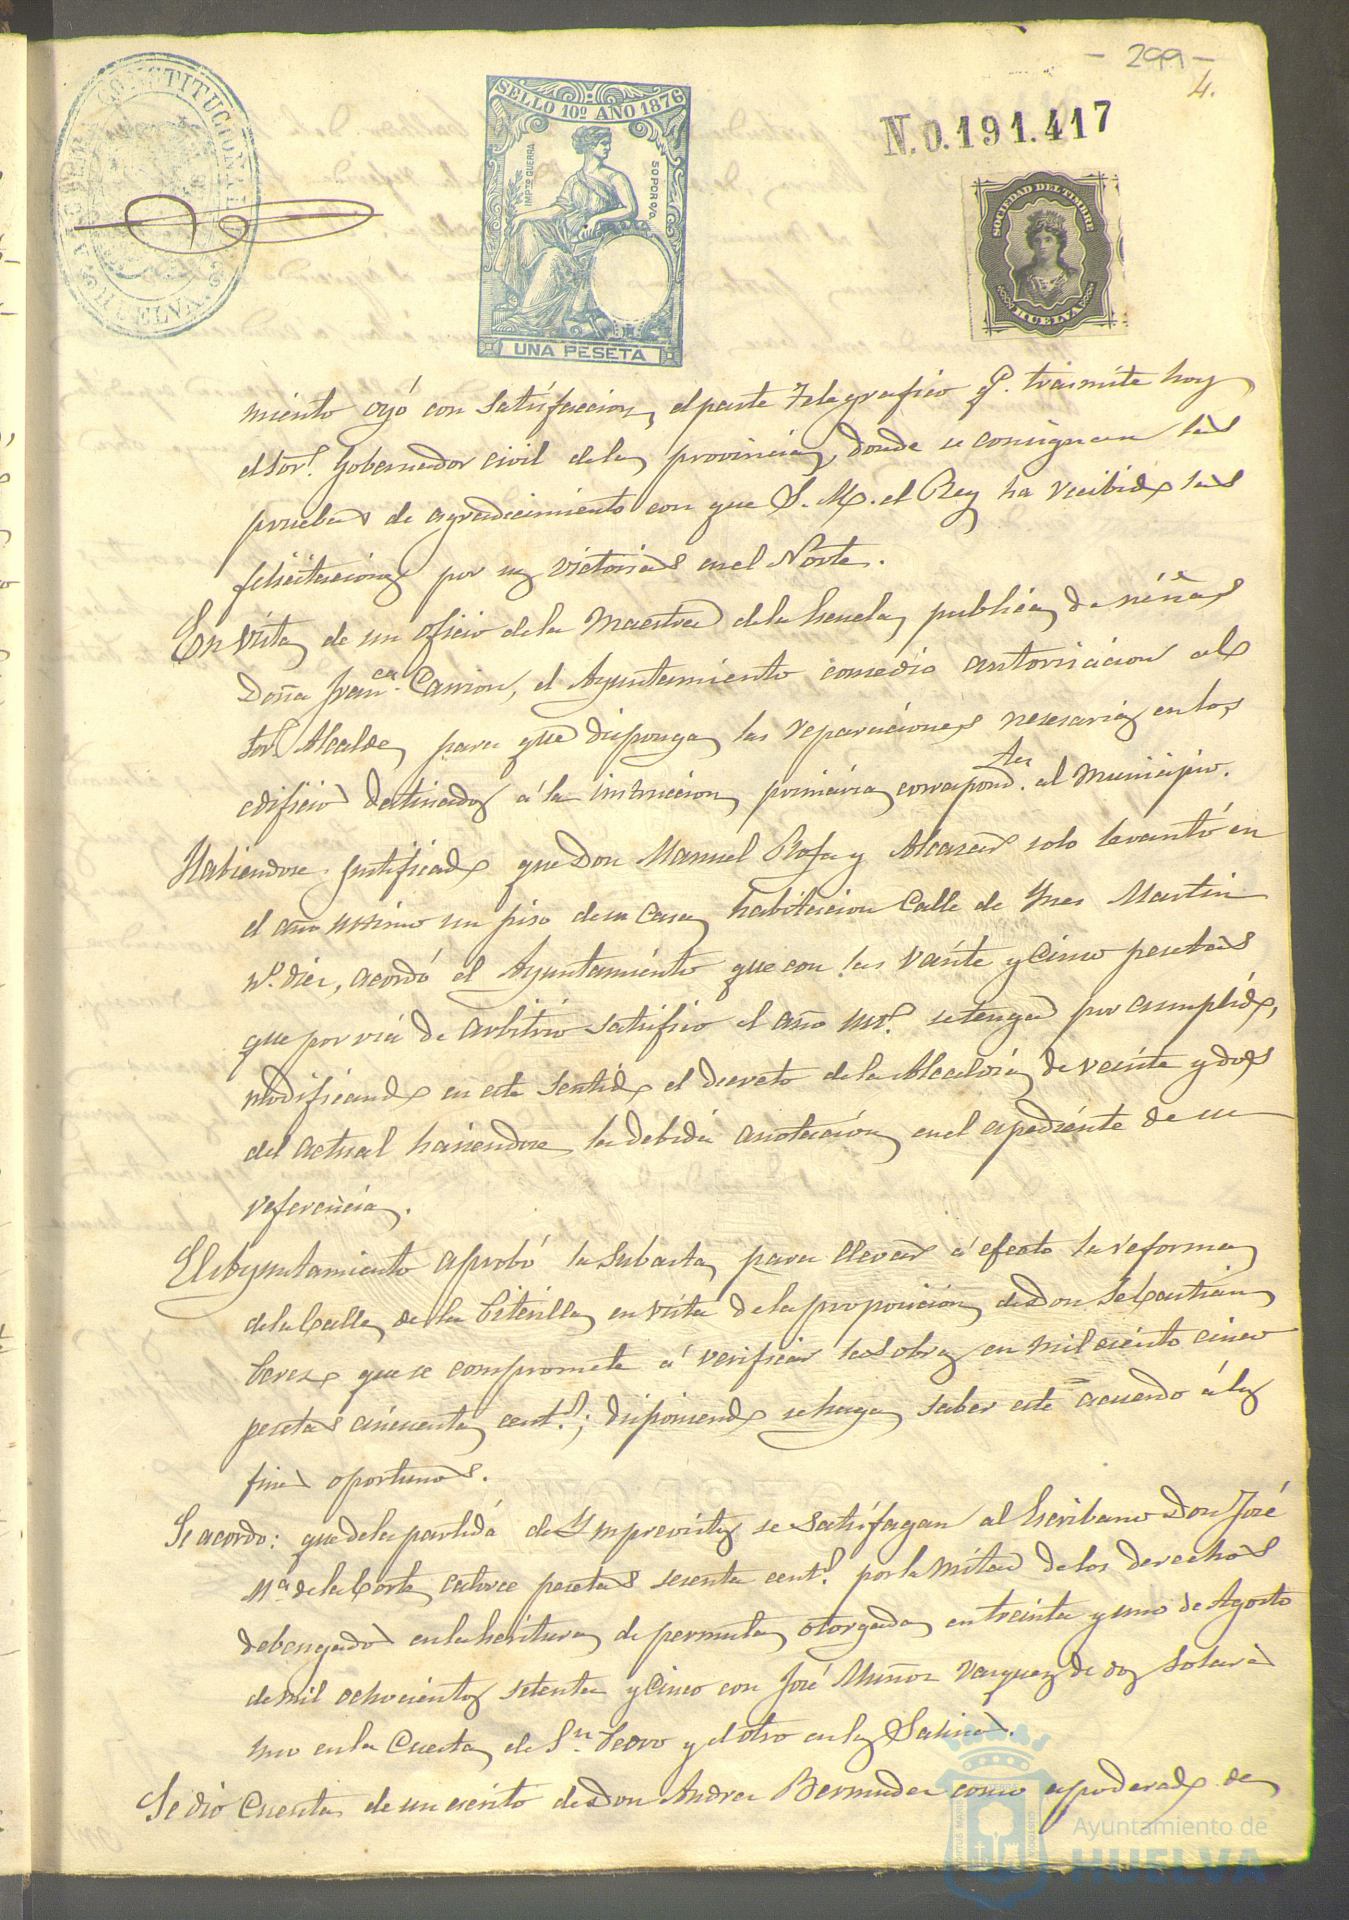 - 299 -
4.
AYUNTAMIENTO CONSTITUCIONAL
HUELVA
SELLO 10º AÑO 1876
IMPTO GUERRA
50 POR 0/0
UNA PESETA
N.0.191.417
SOCIEDAD DEL TIMBRE
HUELVA
miento oyó con satisfaccion, el parte Telegrafico q.e trasmite hoy
el Sor. Gobernador civil de la provincia, donde se consignan las
pruebas de agradecimiento con que S. M. el Rey ha recibido las
felicitaciones por sus victorias en el Norte.
En vista de un oficio de la Maestra de la Escuela publica de niñas
Doña Fran.ca Carrion, el Ayuntamiento concedió autorizacion al
Sor. Alcalde, para que disponga las reparaciones nesesarias en los
edificios destinados á la instrucion primaria correspond.tes al Municipio.
Habiendose justificado que Don Manuel Rofa y Alcazar solo levantó en
el año ultimo un piso de su casa habitacion Calle de Ynes Martin
nº. diez, acordó el Ayuntamiento que con las vainte y cinco pesetas
que por via de arbitrio satisfizo el año ult.º se tenga por cumplido,
modificando en este sentido el decreto de la Alcaldia de veinte y dos
del actual haciendose la debida anotacion en el espediente de su
referencia.
El Ayuntamiento aprobó la subasta para llevar á efecto la reforma
de la Calle de la en vista de la proposicion de Don Sebastian
Perez que se compromete á verificar las obras en mil ciento cinco
pesetas cincuenta cent.s; disponiendo se haga saber este acuerdo á los
fines oportunos.
Se acordo: que de la partida de Ymprevistos se satisfagan al Escribano Don José
M.ª de la Corte catorce pesetas sesenta cent.s por la mitad de los derechos
debengados en la Escritura de permuta otorgada en treinta y uno de Agosto
de mil ochocientos setenta y cinco con José Muñoz Vazquez de dos solares
uno en la Cuesta de S.n Pedro y el otro en las Salinas.
Se dió Cuenta de un escrito de Don Andres Bermudez como apoderado de
Ayuntamiento de
HUELVA